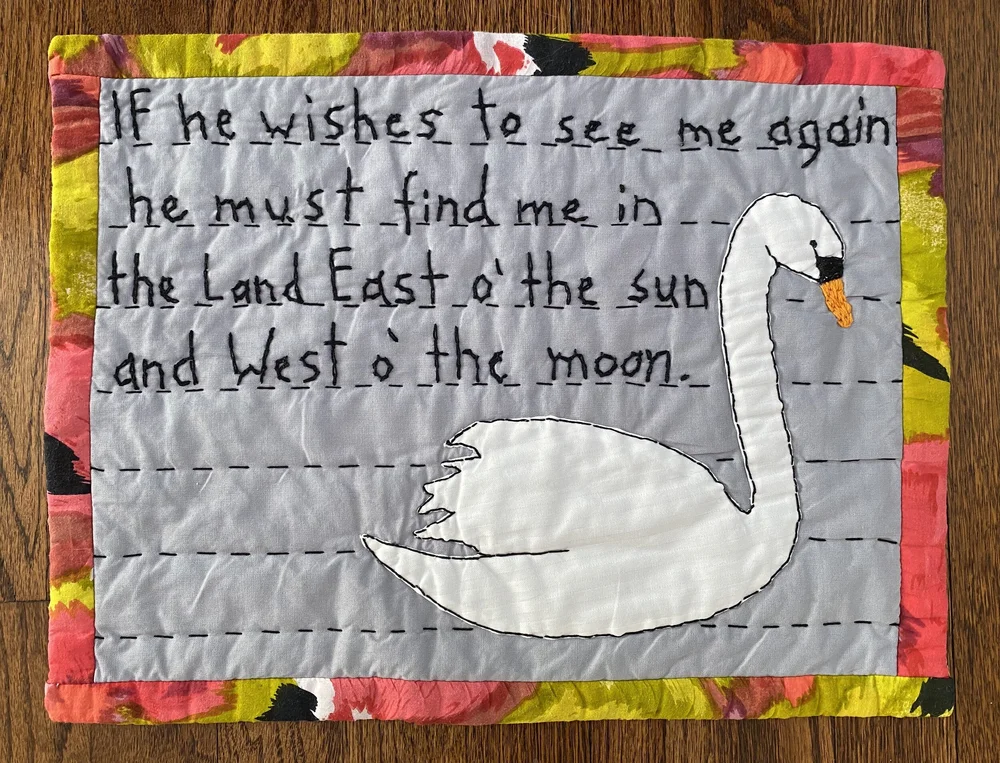 IF he wishes to see me again
he must find me in
the Land East o' the sun
and West o' the moon.